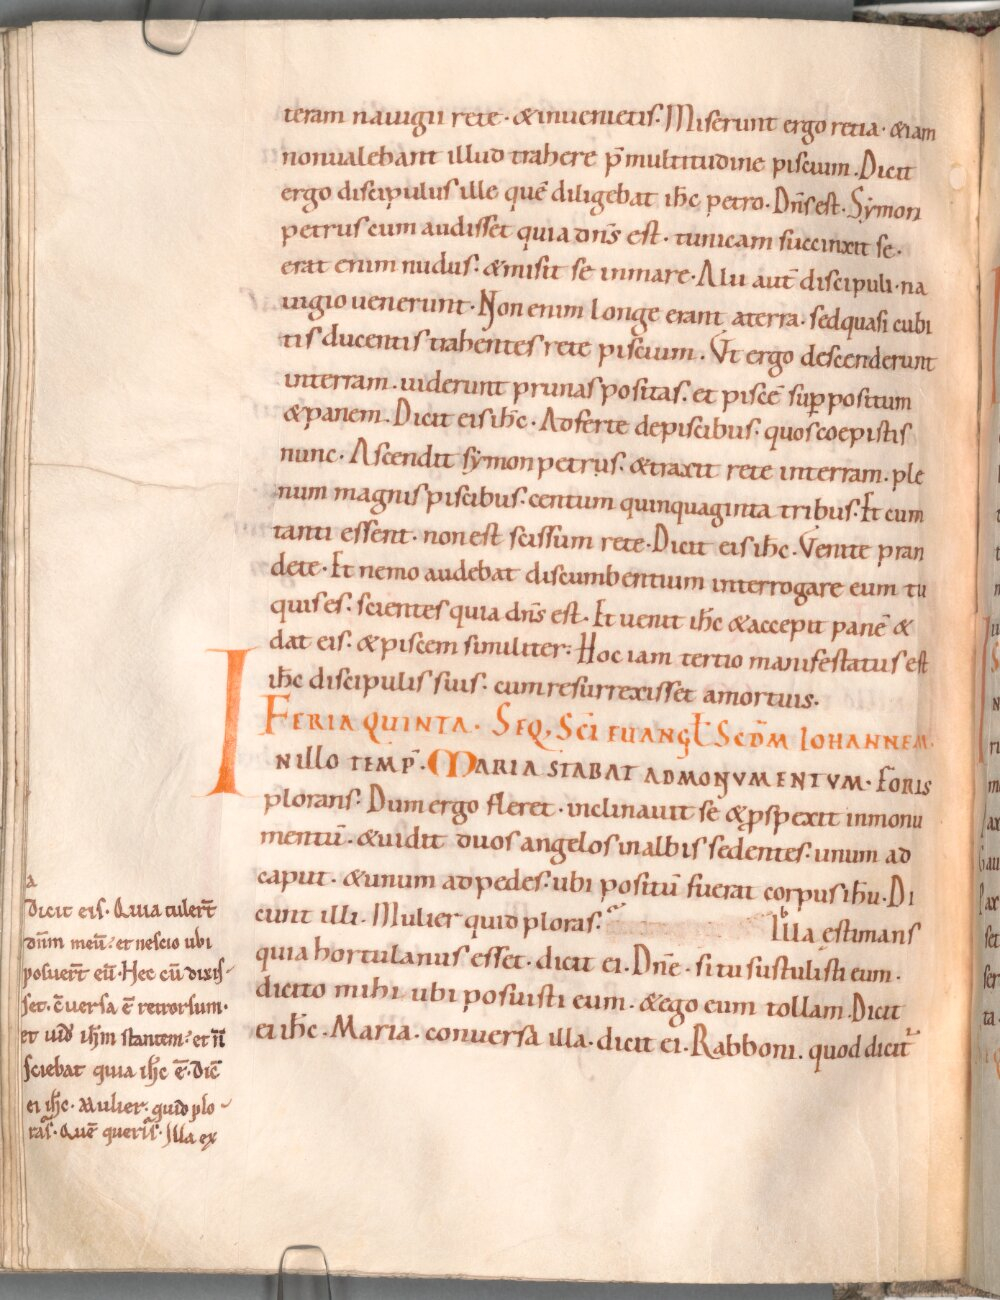 teram nauigii rete· &inuenietis. Miserunt ergo retia· &iam
nonualebant illud trahere p̄ multitudine piscium. Dicit
ergo discipulus ille quē diligebat ih̄c petro· Dn̄s est· Sẏmon
petrus cum audisset quia dn̄s est· tunicam succinxit se·
erat enim nudus· &misit se inmare· Alii aut̄ discipuli· na
uigio uenerunt· Non enim longe erant aterra· sedquasi cubi
tis ducentis trahentes rete piscium. Vt ergo descenderunt
interram. uiderunt prunas positas· et piscē suppositum
&panem. Dicit eis ih̄c· Adferte depiscibus· quos coepistis
nunc· Ascendit sẏmon petrus· &traxit rete interram. ple
num magnis piscibus· centum quinquaginta tribus· Et cum
tanti essent· non est scissum rete· Dicit eis ih̄c· Venite pran
dete· Et nemo audebat discumbentium interrogare eum tu
quis es· scientes quia dn̄s est· Et uenit ih̄c &accepit panē &
dat eis· &piscem similiter· Hoc iam tertio manifestatus est
ih̄c discipulis suis· cum resurrexisset amortuis·
FERIA QUINTA· SEQ, SC̄I EUANGL̄ SCD̄M IOHANNEM·
INILLO TEMP̄· MARIA STABAT ADMONVMENTVM· FORIS
plorans· Dum ergo fleret· inclinauit se &ꝑspexit inmonu
mentū· &uidit duos angelos inalbis sedentes· unum ad
caput· &unum adpedes· ubi positū fuerat corpus ih̄u· Di
cunt illi· Mulier quid ploras· Illa ęstimans
quia hortulanus esset· dicit ei· Dn̄e· situ sustulisti eum·
dicito mihi ubi posuisti eum· &ego eum tollam. Dicit
ei ih̄c· Maria· conuersa illa· dicit ei· Rabboni. quod dicit᷑
a
Dicit eis· Quia tulert̄
dn̄m meū· et nescio ubi
posuert̄ eū· Hec cū dixis-
set· c̄uersa ē retrorsum·
et uid̄ ih̄m stantem· et n̄
sciebat quia ih̄c ē· Dic̄
ei ih̄c· Mulier· quid plo-
ras· Quē queris· Illa ex